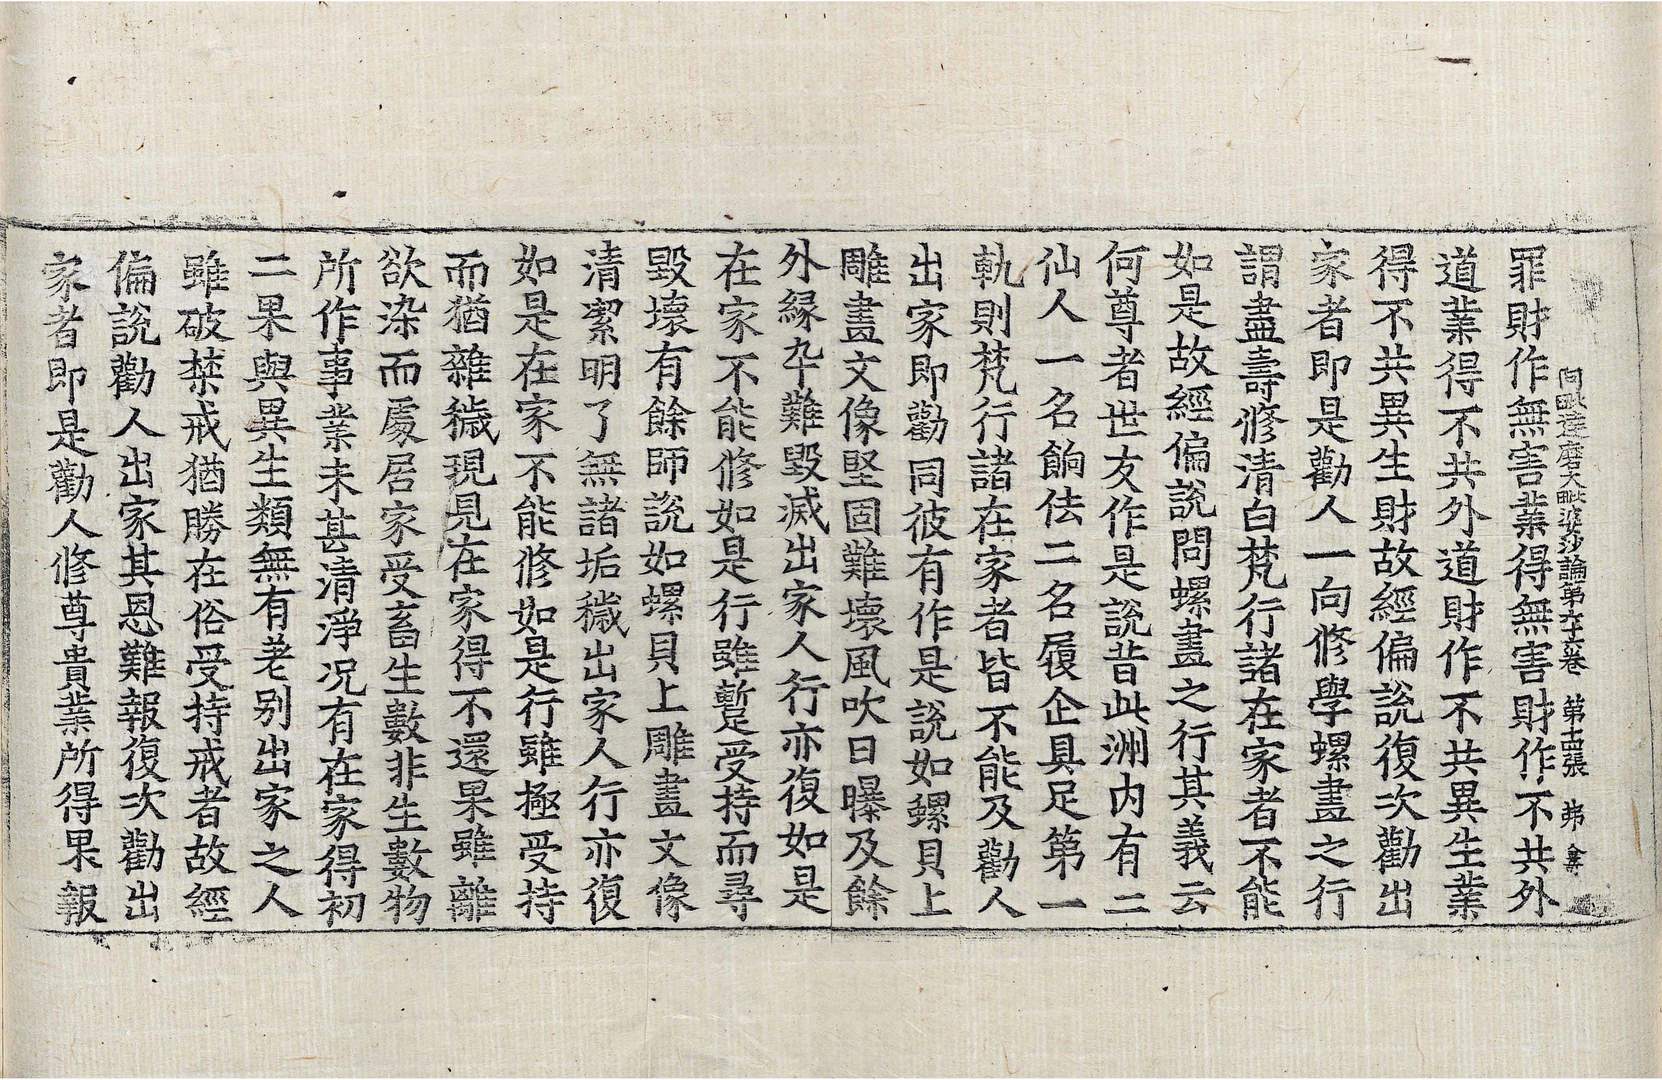 阿毗達磨大毗婆沙論第卷 第十四張 弟
罪財作無害業得無害財作不共外
道業得不共外道財作不共異生業
得不共異生財故經偏說復次勸出
家者即是勸人一向修學螺畫之行
謂盡壽修清白梵行諸在家者不能
如是故經偏說問螺畫之行其義云
何尊者世友作是說昔此洲内有二
仙人一名餉佉二名履企具足第一
軌則梵行諸在家者皆不能及勸人
出家即勸同彼有作是說如螺貝上
雕畫文像堅固難壞風吹日曝及餘
外緣卒難毀滅出家人行亦復如是
在家不能修如是行雖暫受持而尋
毀壞有餘師說如螺貝上雕畫文像
清潔明了無諸垢穢出家人行亦復
如是在家不能修如是行雖極受持
而猶雜穢現見在家得不還果雖離
欲染而處居家受畜生數非生數物
所作事業未甚清淨况有在家得初
二果與異生類無有差別出家之人
雖破禁戒猶勝在俗受持戒者故經
偏說勸人出家其恩難報復次勸出
家者即是勸人修尊貴業所得果報